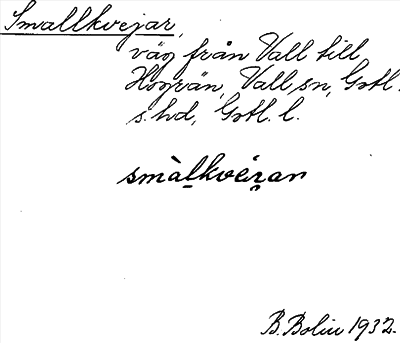 Smallkvejar,
väg från Vall till
Hogrän, Vall sn, Gotl.
s. hd, Gotl. l.
smàl̠kvéi̯ran
B. Bolin 1932.